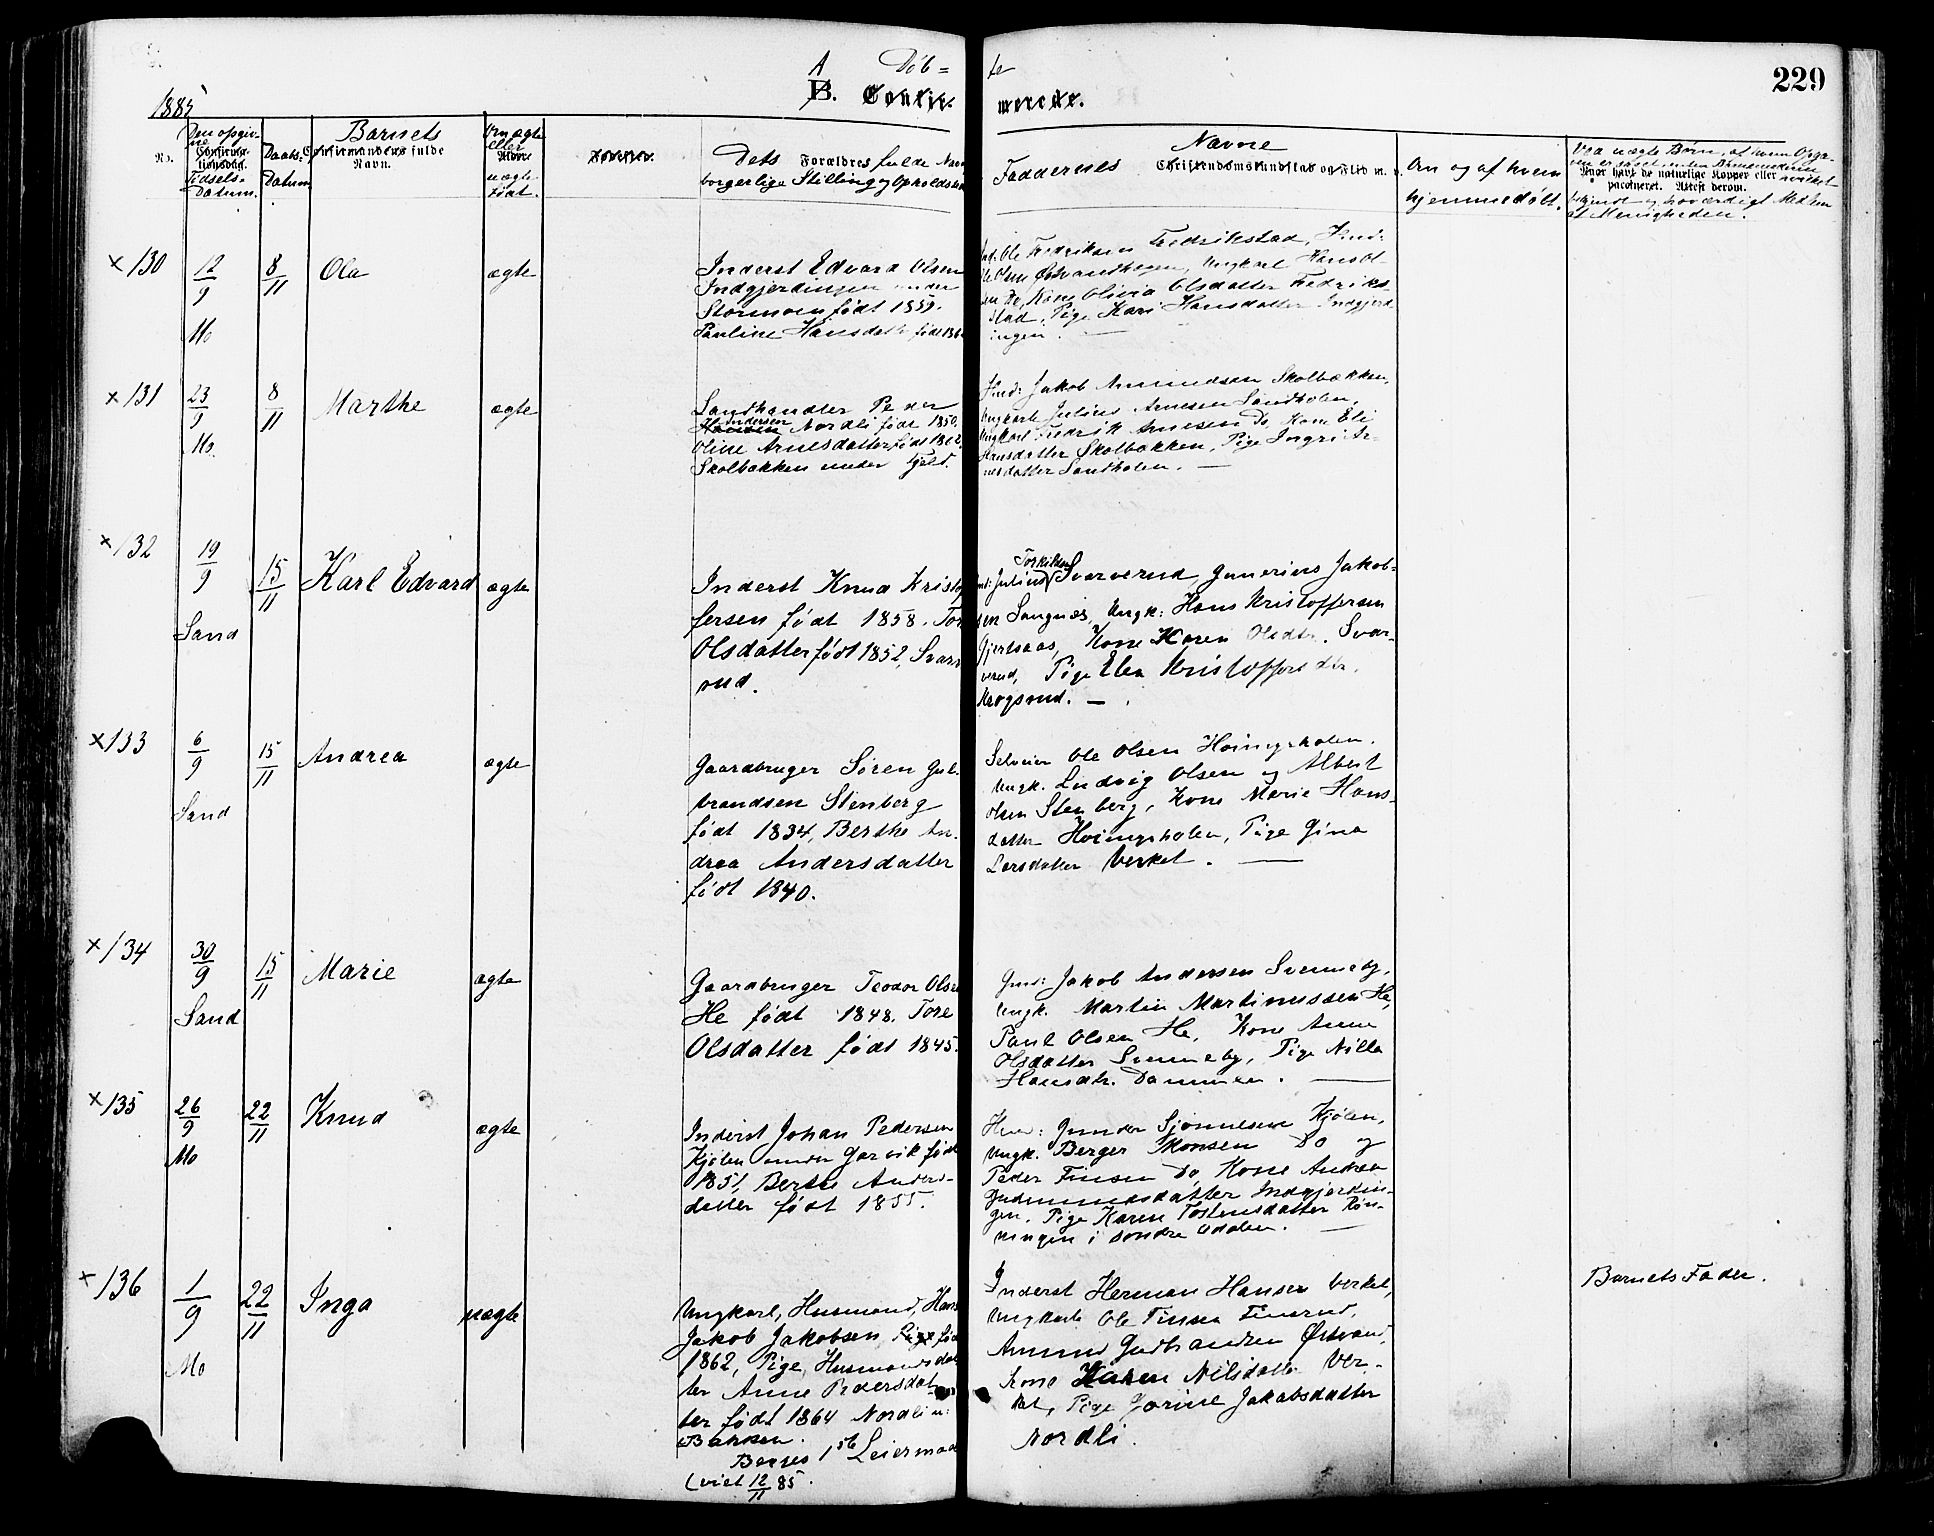 A Døb= te
B. Confir= merede.
229
1885
No.
Den opgivne Fødsels-Datum.
Daabs-Datum
Barnets fulde Navn.
Om ægte eller uægte født.
Dets Forældres fulde Navn borgerlige Stilling og Opholdssted
Faddernes Navne
Om og af hvem hjemmedøbt.
x 130
12/9
Mo
8/11
Ole
ægte
Inderst Edvard Olsen
Indgjerdingen under
Stormoen født 1859.
Pauline Hansdatter født 186
Ole Fredriksen Fredrikstad, Hmd:
Ole Olsen Østvandhagen, Ungkarl Hans Ol
sen Do, Kone Olivia Olsdatter Fredrik-
stad, Pige Kari Hansdatter Indgjerd
ingen. —
x 131
23/9
Mo.
8/11
Marthe
ægte
Landhandler Peder
Andersen Nordli født 1850.
Oline Arnesdatter født 1862
Skolbækken under Gjeld.
Hmd: Jakob Amundsen Skolbækken,
Ungkarl Julius Arnesen Sandholen,
Ungkarl Fredrik Arnesen Do, Kone Eli
Arnesdatter Skolbækken, Pige Ingri Ar-
nesdatter Sandholen. —
x 132
19/9
Sand
15/11
Karl Edvard
ægte
Inderst Knud Kristof
fersen født 1858. Tor
Olsdatter født 1852, Svarv
rud.
Torkilsen
Gmd: Julius Svarverud, Gunerius Jakob-
sen Sangnæs, Ungk: Hans Kristoffersen
Gjertsaas, Kone Karen Olsdtr. Svar-
verud, Pige Elen Kristoffersdtr.
Krogsrud. —
x 133
6/9
Sand
15/11
Andrea
ægte
Gaardbruger Søren Gul-
brandsen Stenberg
født 1834, Berthe An-
drea Andersdatter
født 1840.
Selveier Ole Olsen Hoingsholen.
Ungk. Ludvig Olsen og Albert
Olsen Stenberg, Kone Marie Hans-
datter Hoingsholen, Pige Gina
Larsdatter Verket. —
x 134
30/9
Sand
15/11
Marie
ægte
Gaardbruger Teodor Olsen
He født 1848. Tore
Olsdatter født 1845.
Gmd: Jakob Andersen Svenneby,
Ungk. Martin Martinussen He,
Paul Olsen He, Kone Anne
Olsdatter Svenneby, Pige Nille
Hansdtr. Dammen. —
x 135
26/9
Mo
22/11
Knud
ægte
Inderst Johan Pedersen
Kjølen under Garvik født
1851, Berthe Anders-
datter født 1855.
Hmd: Gunder Sjønnesen Kjølen,
Ungk. Berger Monsen Do og
Peder Finsen Do, Kone Andrea
Gudmundsdatter Indgjerdin-
gen, Pige Karen Tostensdatter Røn-
ningen i søndre Odalen. —
x 136
1/9
Mo
22/11
Inga
uægte
Ungkarl, Husmand, Hans
Jakob Jakobsen født
1862, Pige, Husmandsdat
ter Anne Pedersdat
ter født 1864 Nordli u:
Bakken.
Begges 1ste Leiermaal
(viet 12/11 85.
Inderst Herman Hansen Verket,
Ungkarl Ole Finsen Finsrud,
Amund Gudbrandsen Østvand,
Kone Karen Nilsdatter Ver-
ket, Pige Jorine Jakobsdatter
Nordli.
Barnets Fader.